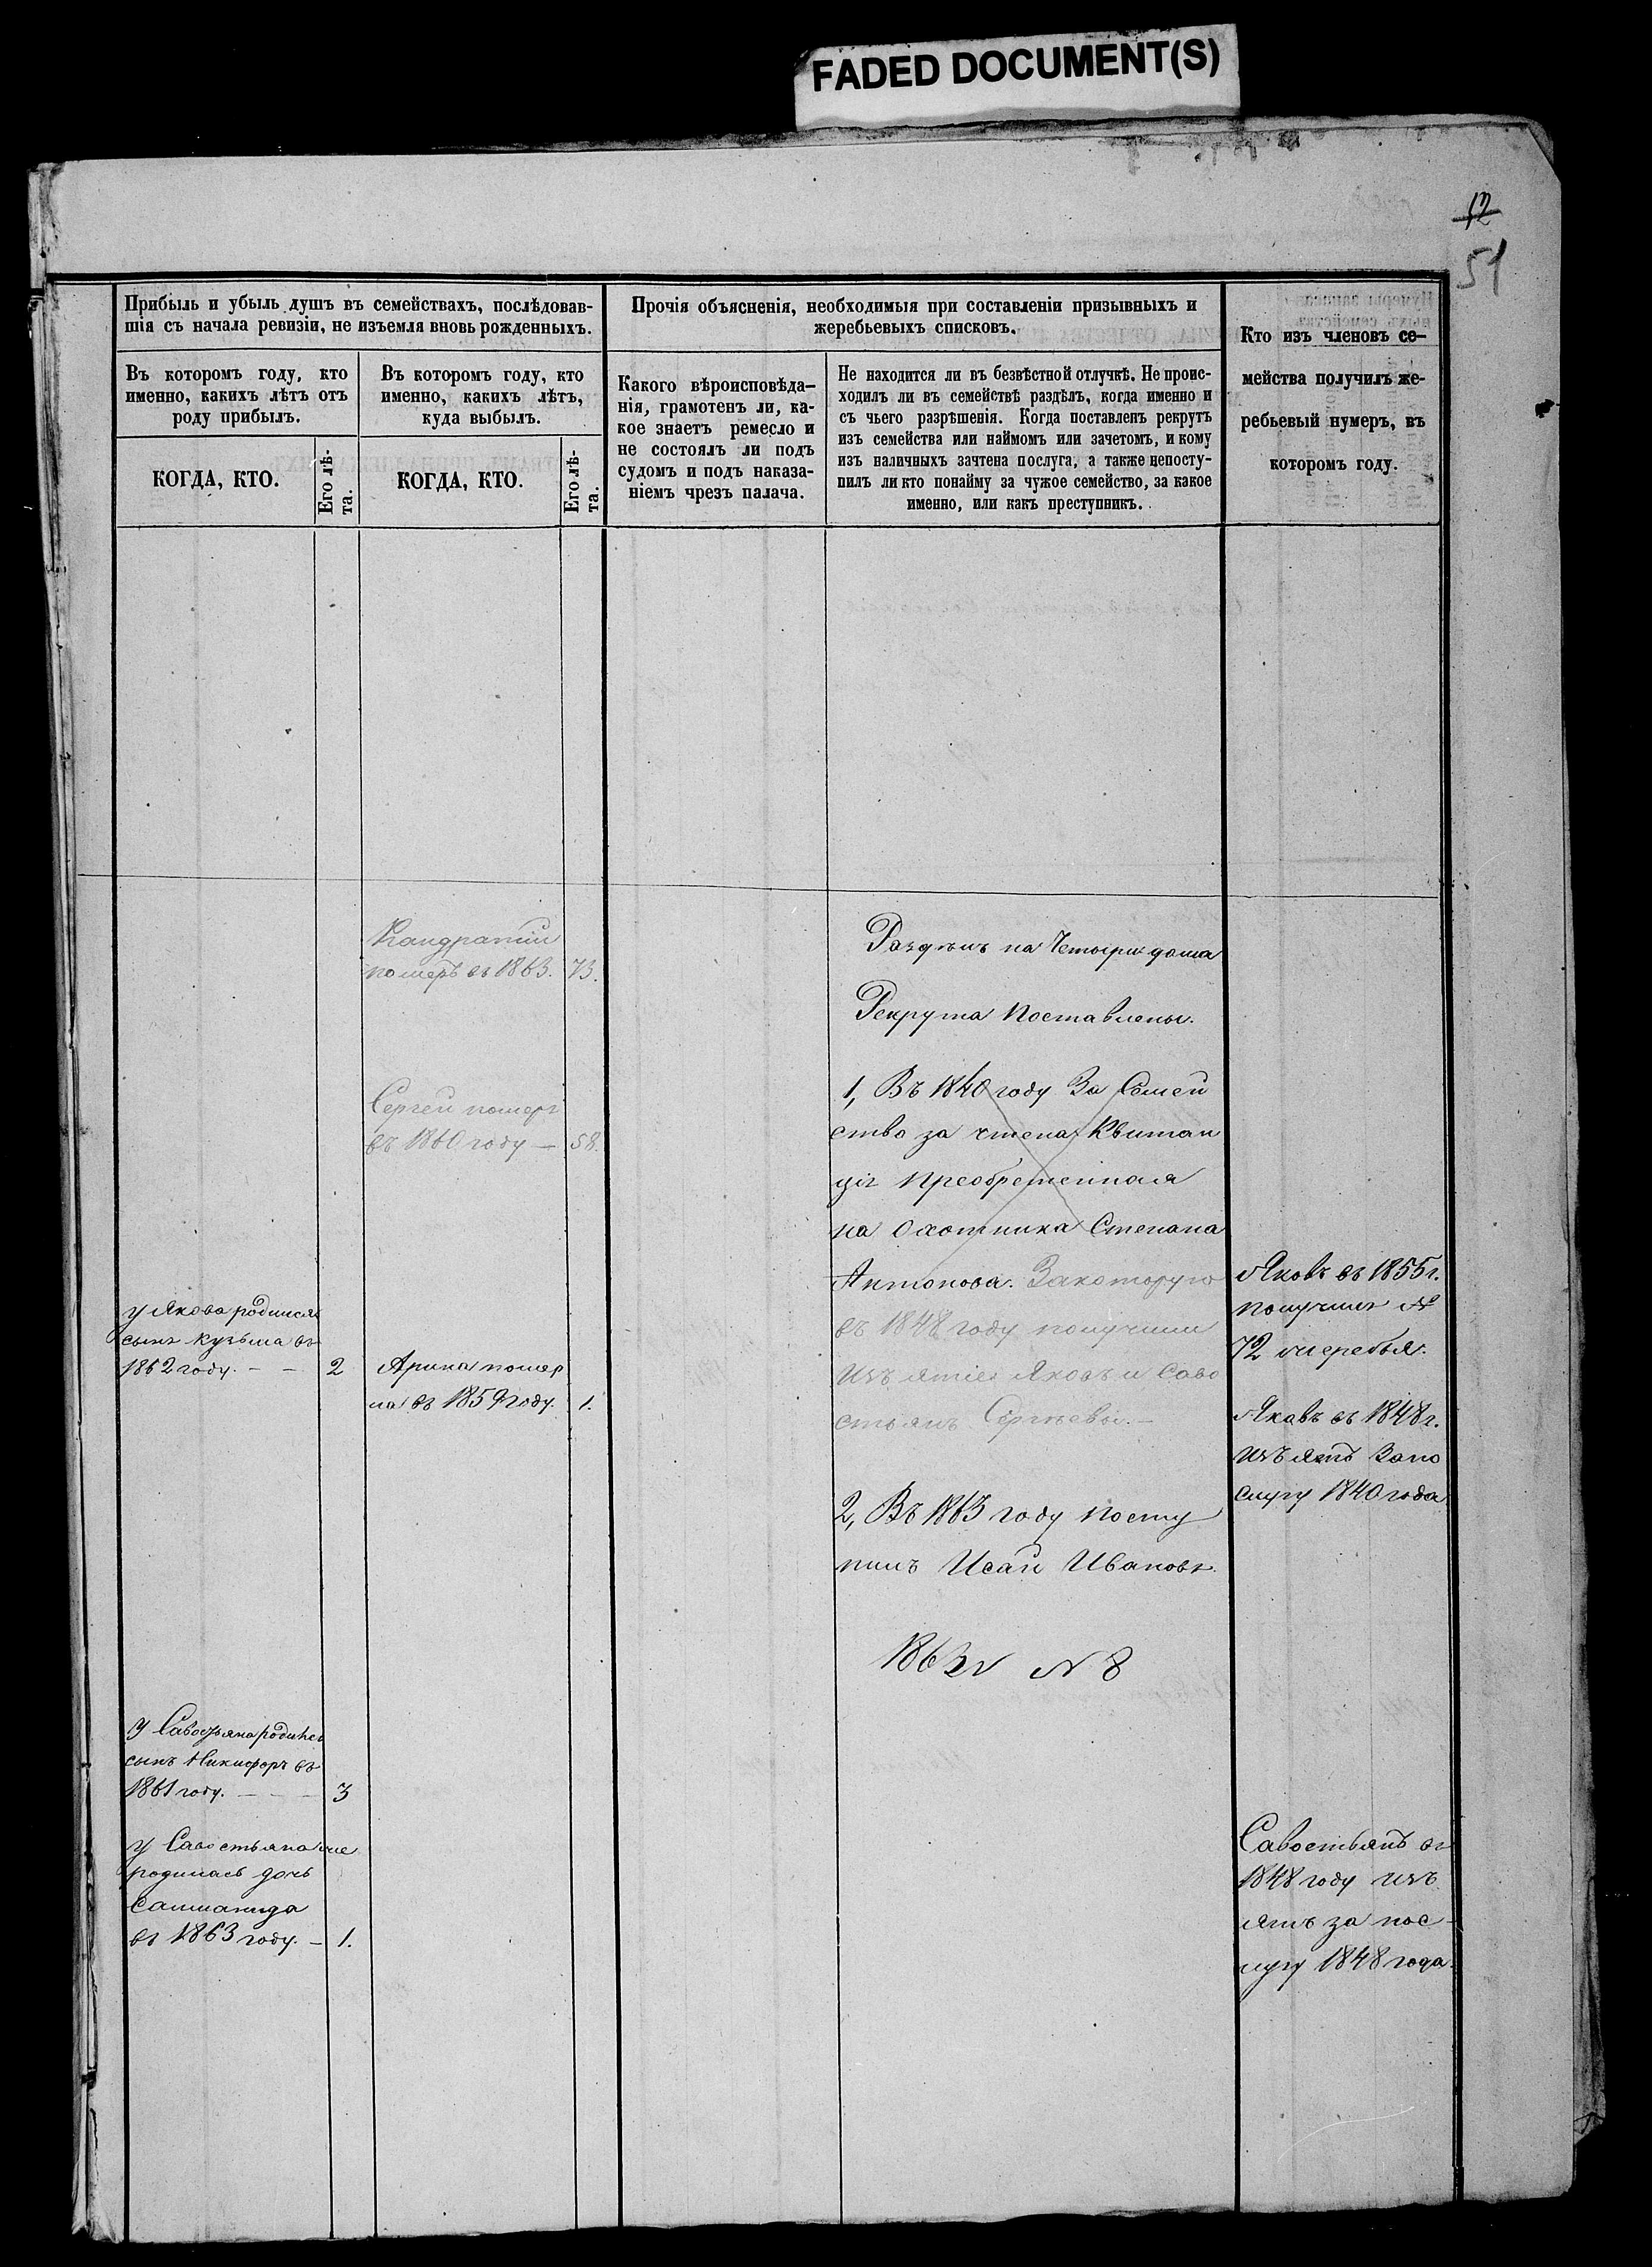 FADED DOCUMENT(S)
12
51
Прибыль и убыль душъ въ семействахъ, послѣдовав-
шія съ начала ревизіи, не изъемля вновь рожденныхъ.
Въ которомъ году, кто
именно, какихъ лѣтъ отъ
роду прибылъ.
КОГДА, КТО.
Его лѣ-
та.
Въ которомъ году, кто
именно, какихъ лѣтъ,
куда выбылъ.
КОГДА, КТО.
Его лѣ-
та.
Прочія объясненія, необходимыя при составленіи призывныхъ и
жеребьевыхъ списковъ.
Какого вѣроисповѣда-
нія, грамотенъ ли, ка-
кое знаетъ ремесло и
не состоялъ ли подъ
судомъ и подъ наказа-
ніемъ чрезъ палача.
Не находится ли въ безвѣстной отлучкѣ. Не проис-
ходилъ ли въ семействѣ раздѣлъ, когда именно и
съ чьего разрѣшенія. Когда поставленъ рекрутъ
изъ семейства или наймомъ или зачетомъ, и кому
изъ наличныхъ зачтена послуга, а также непосту-
пилъ ли кто понайму за чужое семейство, за какое
именно, или какъ преступникъ.
Кто изъ членовъ се-
мейства получилъ же-
ребьевый нумеръ, въ
которомъ году.
у Якова родился
сынъ Кузьма въ
1862 году. — — 2
у Савостьяна родился
сынъ Никифоръ въ
1861 году. — — — 3
у Савостьяна же
родилась дочь
въ 1863 году. — 1.
Кандратий
померъ въ 1863. 73.
Сергей померъ
въ 1860 году — 58.
Арина помер
ла въ 1859 году. 1.
Раздѣлъ на Четыри дома
Рекрута Поставлены.
1, Въ 1840 году За Семей
ство за чтена Квитан
ція Преобретенная
на охотника Степана
Антонова. Закоторую
въ 1848 году получили
Изъятіе Яковъ и Саво
стьянъ Сергѣевы. —
2, Въ 1863 году посту
пилъ Исай Ивановъ.
1863 г № 8
Яковъ въ 1855 г.
получилъ №
72 жеребья.
Яковъ въ 1848 г.
Изъятъ Запо
слугу 1840 года
Савостьянъ въ
1848 году изъ
ятъ за пос-
лугу 1848 года.